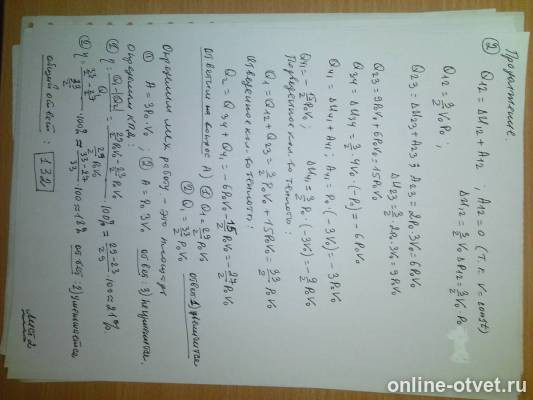 Продолжение.
② Q12 = ΔU12 + A12 ; A12 = 0 (т.к. V = const)
Q12 = 3/2 V0P0 ; ΔU12 = 3/2 V0 ΔP12 = 3/2 V0 · P0
Q23 = ΔU23 + A23 ; A23 = 2P0 · 3V0 = 6P0V0
ΔU23 = 3/2 · 2P0 · 3V0 = 9P0V0
Q23 = 9P0V0 + 6P0V0 = 15P0V0
Q34 = ΔU34 = 3/2 · 4V0 · (-P0) = -6P0V0
Q41 = ΔU41 + A41 ; A41 = P0 · (-3V0) = -3P0V0
Q41 = -15/2 P0V0 ; ΔU41 = 3/2 P0 · (-3V0) = -9/2 P0V0
кол-во теплоты :
Q1 = Q12 + Q23 = 3/2 P0V0 + 15P0V0 = 33/2 P0V0
Отведенное кол-во теплоты :
Q2 = Q34 + Q41 = -6P0V0 - 15/2 P0V0 = -27/2 P0V0
Ответим на вопрос А) ① Q1 = 29/2 P0V0
② Q1 = 33/2 P0V0 ответ 1) увеличится
Определим мех работу - это площадь
① A = 3P0 · V0 ; ② A = P0 · 3V0 ответ 3) не изменится.
Определим КПД:
① η = Q1 - |Q2| / Q1 = 29/2 P0V0 - 23/2 P0V0 / 29/2 P0V0 · 100% = 29-23 / 29 · 100 ≈ 21%.
② η = 33/2 - 27/2 / 33/2 · 100% = 33-27 / 33 · 100 ≈ 18% ответ: 2) уменьшается
общий ответ : 132
Лист 2
online-otvet.ru